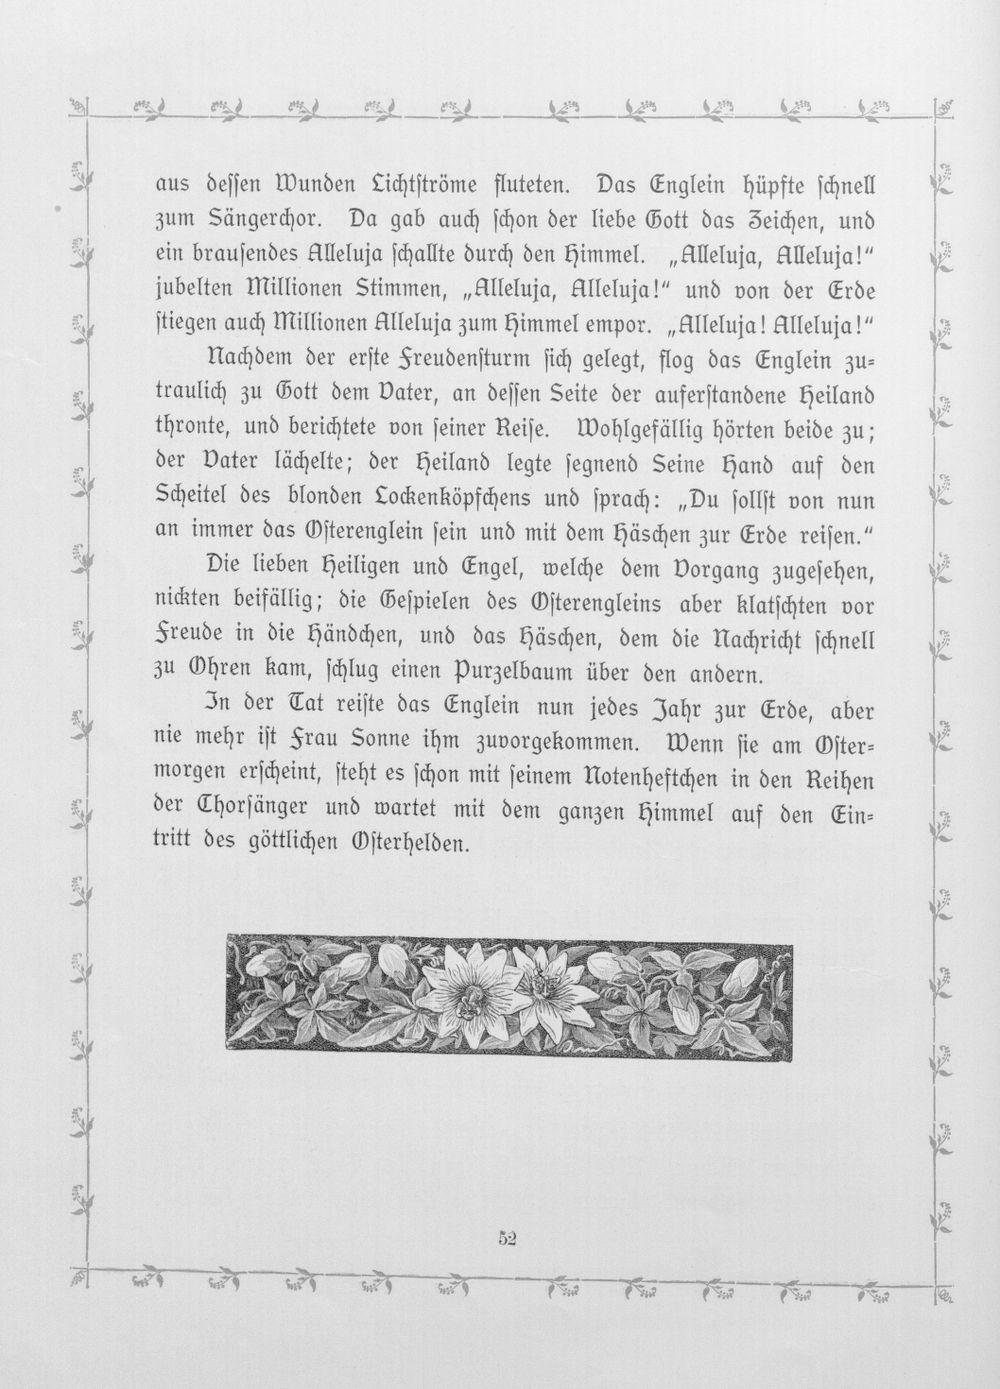 aus dessen Wunden Lichtströme fluteten. Das Englein hüpfte schnell
zum Sängerchor. Da gab auch schon der liebe Gott das Zeichen, und
ein brausendes Alleluja schallte durch den Himmel. „Alleluja, Alleluja!“
jubelten Millionen Stimmen, „Alleluja, Alleluja!“ und von der Erde
stiegen auch Millionen Alleluja zum Himmel empor. „Alleluja! Alleluja!“
Nachdem der erste Freudensturm sich gelegt, flog das Englein zu-
traulich zu Gott dem Vater, an dessen Seite der auferstandene Heiland
thronte, und berichtete von seiner Reise. Wohlgefällig hörten beide zu;
der Vater lächelte; der Heiland legte segnend Seine Hand auf den
Scheitel des blonden Lockenköpfchens und sprach: „Du sollst von nun
an immer das Osterenglein sein und mit dem Häschen zur Erde reisen.“
Die lieben Heiligen und Engel, welche dem Vorgang zugesehen,
nickten beifällig; die Gespielen des Osterengleins aber klatschten vor
Freude in die Händchen, und das Häschen, dem die Nachricht schnell
zu Ohren kam, schlug einen Purzelbaum über den andern.
In der Tat reiste das Englein nun jedes Jahr zur Erde, aber
nie mehr ist Frau Sonne ihm zuvorgekommen. Wenn sie am Oster-
morgen erscheint, steht es schon mit seinem Notenheftchen in den Reihen
der Chorsänger und wartet mit dem ganzen Himmel auf den Ein-
tritt des göttlichen Osterhelden.
52